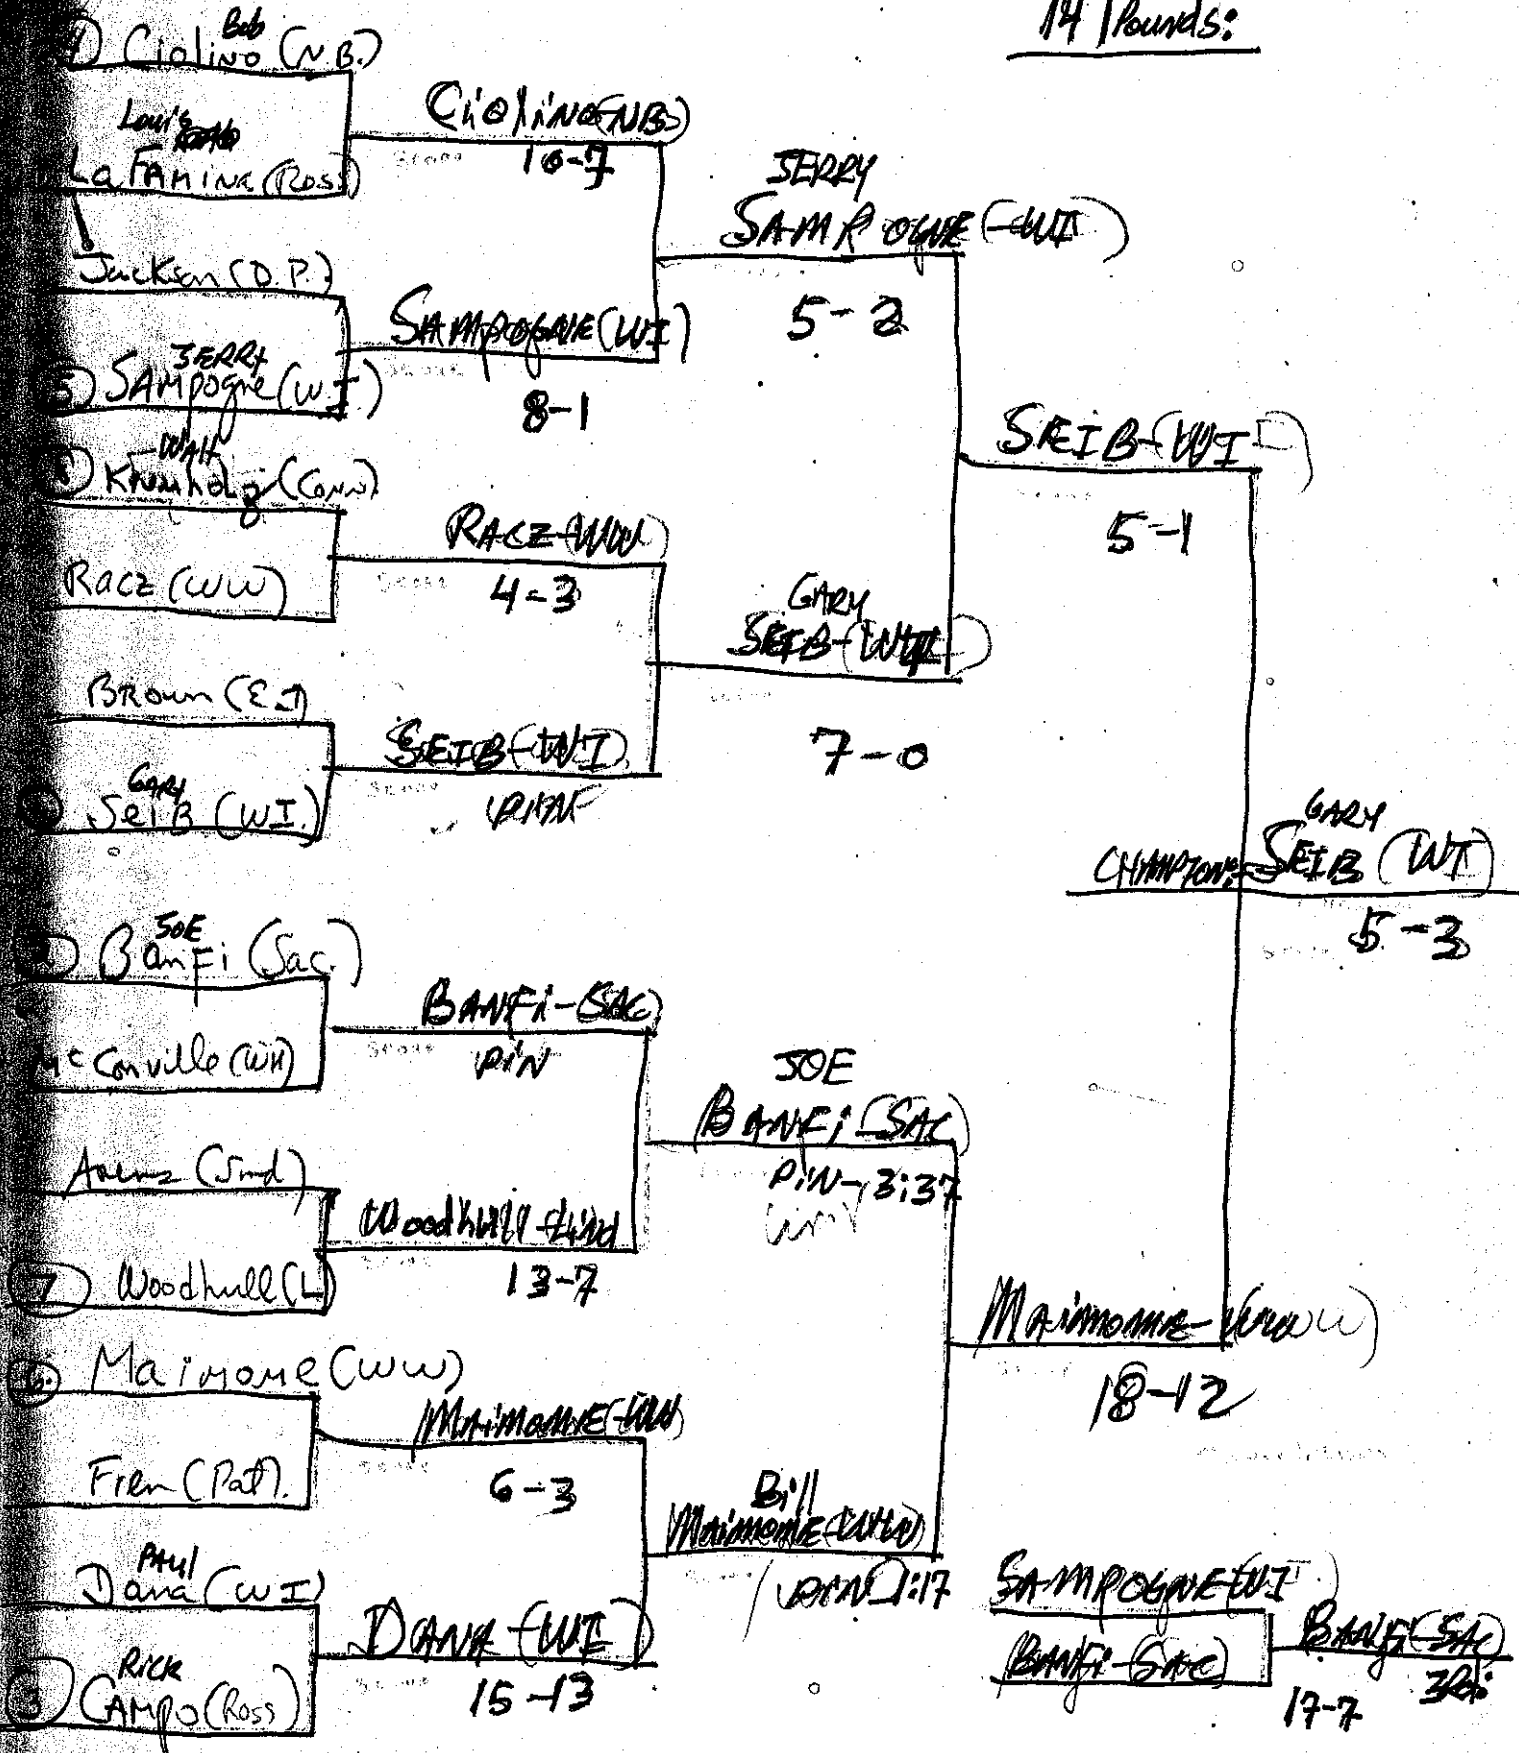 141 Pounds:
1) Bob Ciolino (N.B.)
Louis
LaFamina (Ross)
Jackson (D.P.)
5) JERRY SAMpogne (W.I.)
Walt
Krumholz (Conn)
Racz (WW)
BROWN (E.I)
GARY
SeiB (WI.)
JOE
BanFi (Sac.)
McConville (WH)
(Smd)
7 Woodhull (L)
6. Maimone (WW)
(Pat).
PAUl
Dana (WI)
RICK
3 CAMPO (Ross)
CiolinO (NB)
Score
10-7
SAMpOGNE (WI)
Score
8-1
RACZ-(WW)
Score
4-3
SEIB-(WI)
Score
PIN
BANFi-(SAC)
Score
PIN
Woodhull-Lind
Score
13-7
MAiMONE-(WW)
Score
6-3
DANA-(WI)
Score
15-13
JERRY
SAMPOGNE (-WI)
5-2
GARY
SEIB-(WI)
7-0
JOE
BANFi-(SAC)
PIN-3:37
Bill
MAiMONE-(WW)
PIN 1:17
SEIB-(WI)
Score
5-1
MAiMONE-(WW)
Score
18-12
GARY
CHAMPION:-SEIB (WI)
Score
5-3
SAMPOGNE (WI)
BANFi-(SAC)
BANFi-(SAC)
17-7 3RD: